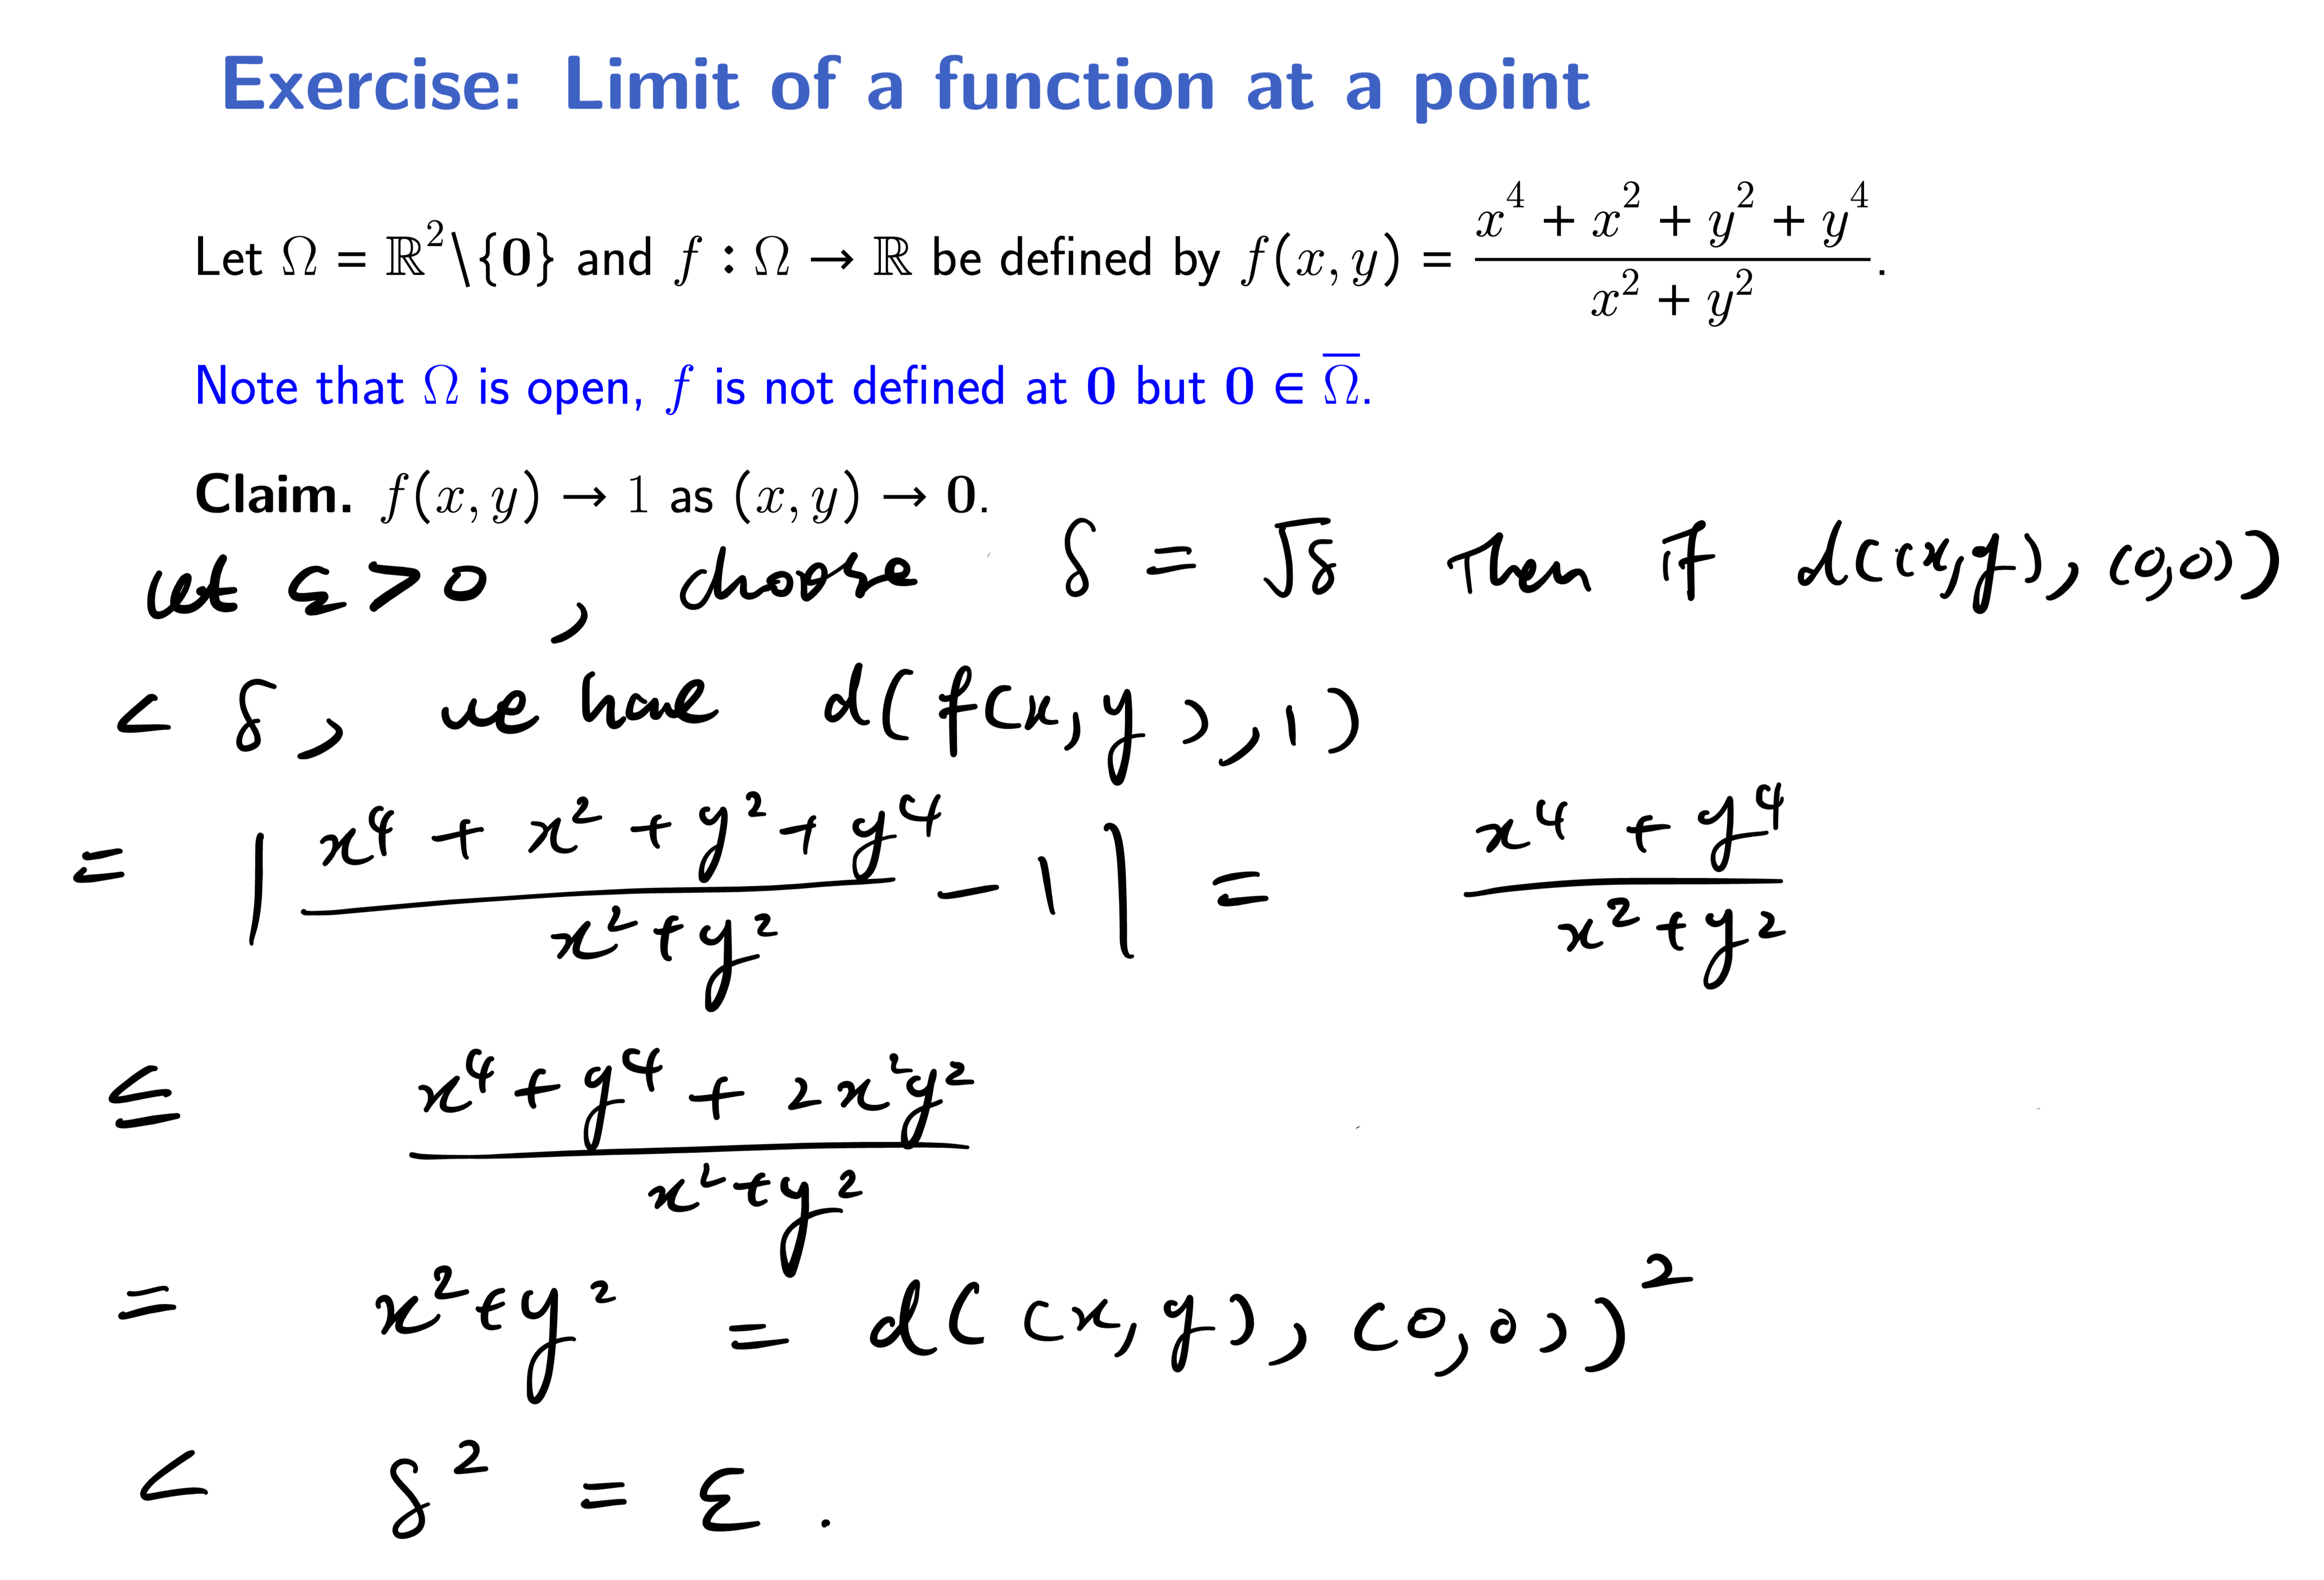 Exercise: Limit of a function at a point
Let Ω = ℝ²\{0} and f : Ω → ℝ be defined by f(x, y) = (x⁴ + x² + y² + y⁴)/(x² + y²).
Note that Ω is open, f is not defined at 0 but 0 ∈ Ω̅.
Claim. f(x, y) → 1 as (x, y) → 0.
let ε > 0 , choose δ = √δ Then if d((x,y), (0,0))
< δ, we have d(f(x,y), 1)
= |(x⁴ + x² + y² + y⁴)/(x² + y²) − 1| = (x⁴ + y⁴)/(x² + y²)
≤ (x⁴ + y⁴ + 2x²y²)/(x² + y²)
= x² + y² = d((x,y), (0,0))²
< δ² = ε .